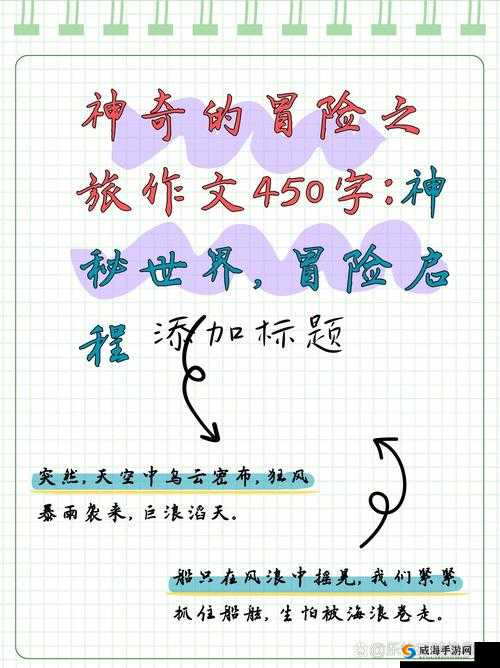 神奇的冒险之
旅作文450字:神
秘世界,冒险启
程 添加标题
突然,天空中乌云密布,狂风
暴雨袭来,巨浪滔天。
船只在风浪中摇晃,我们紧紧
抓住船舷,生怕被海浪卷走。
威海手游网